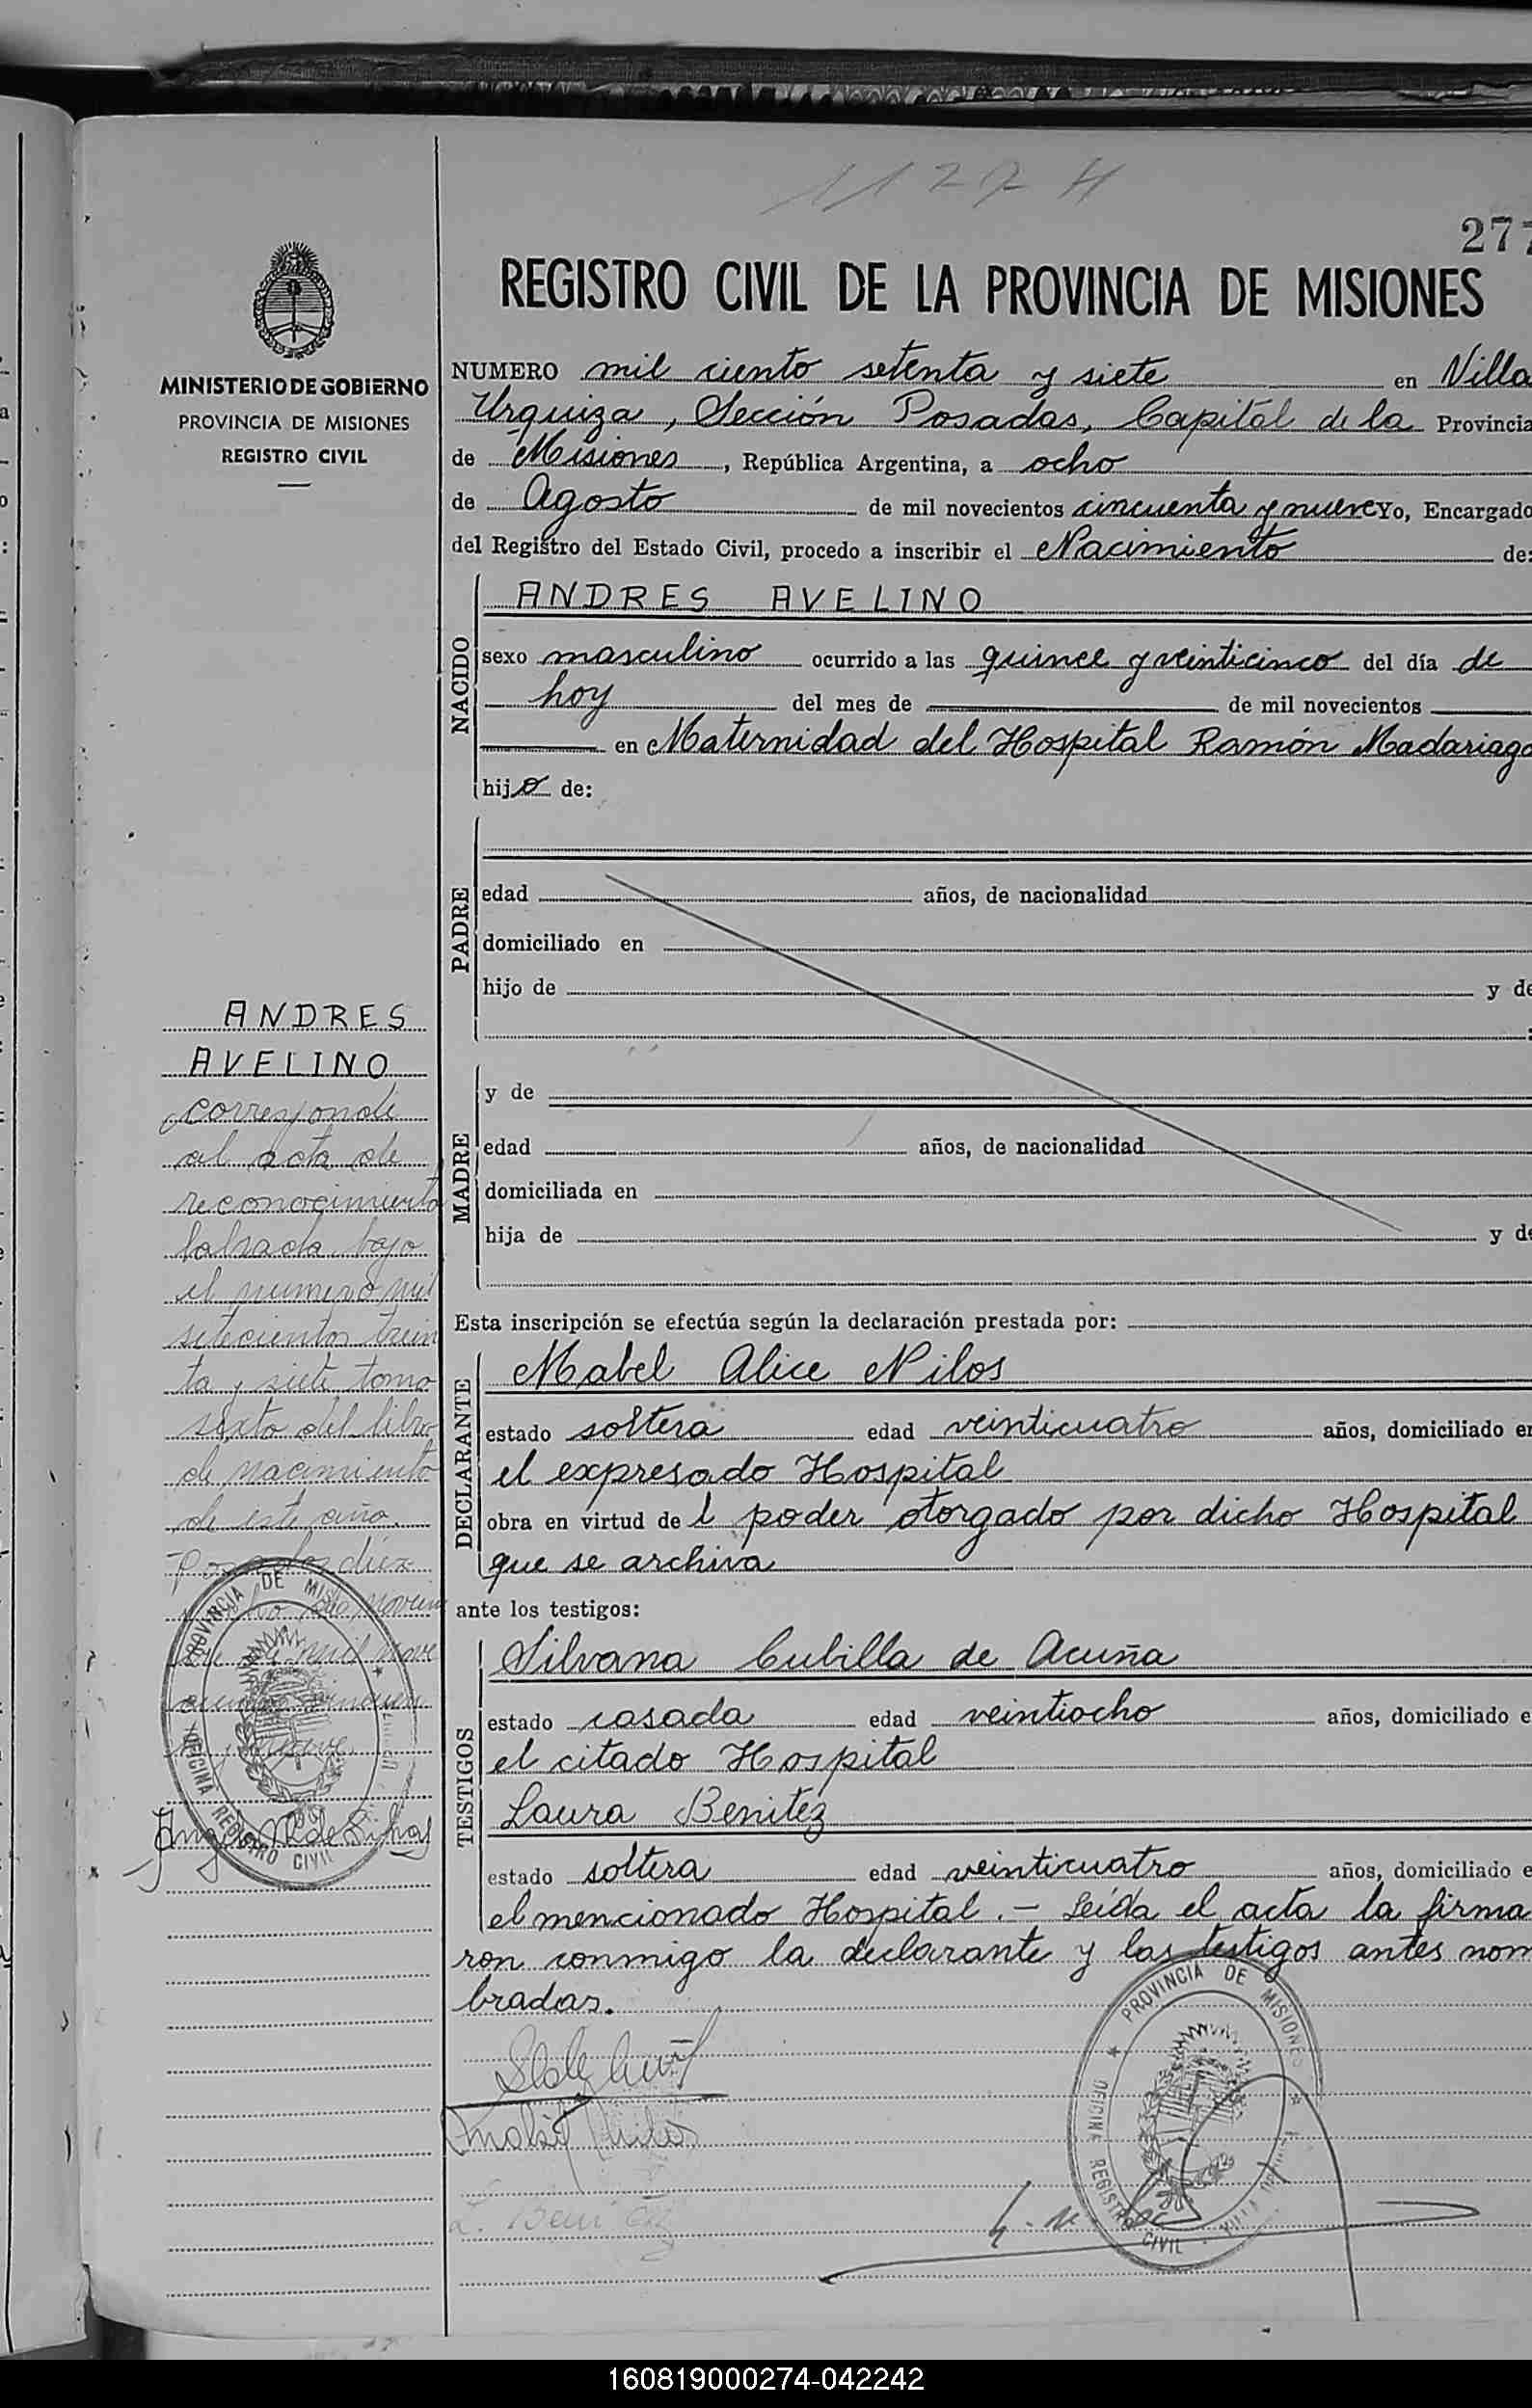 277
REGISTRO CIVIL DE LA PROVINCIA DE MISIONES
MINISTERIO DE GOBIERNO
PROVINCIA DE MISIONES
REGISTRO CIVIL
NUMERO mil ciento setenta y siete en Villa
Urquiza, Sección Posadas, Capital de la Provincia
de Misiones, República Argentina, a ocho
de Agosto de mil novecientos cincuenta y nueve Yo, Encargado
del Registro del Estado Civil, procedo a inscribir el Nacimiento de:
NACIDO
ANDRES AVELINO
sexo masculino ocurrido a las quince y veinticinco del día de
hoy del mes de de mil novecientos
en Maternidad del Hospital Ramón Madariaga
hijo de:
PADRE
edad años, de nacionalidad
domiciliado en
hijo de y de
MADRE
y de
edad años, de nacionalidad
domiciliada en
hija de y de
Esta inscripción se efectúa según la declaración prestada por:
DECLARANTE
Mabel Alice Nilos
estado soltera edad veinticuatro años, domiciliado en
el expresado Hospital
obra en virtud de l poder otorgado por dicho Hospital
que se archiva
ante los testigos:
TESTIGOS
Silvana Cubilla de Acuña
estado casada edad veintiocho años, domiciliado e
el citado Hospital
Laura Benitez
estado soltera edad veinticuatro años, domiciliado e
el mencionado Hospital.- Leída el acta la firma
ron conmigo la declarante y las testigos antes nom
bradas.
L. Benitez
PROVINCIA DE MISIONES
OFICINA REGISTRO CIVIL
ANDRES
AVELINO
corresponde
al acta de
reconocimiento
labrada bajo
el numero mil
setecientos trein
ta y siete tomo
sexto del libro
de nacimiento
de este año.
Posadas diez
PROVINCIA DE MISIONES
OFICINA REGISTRO CIVIL
160819000274-042242